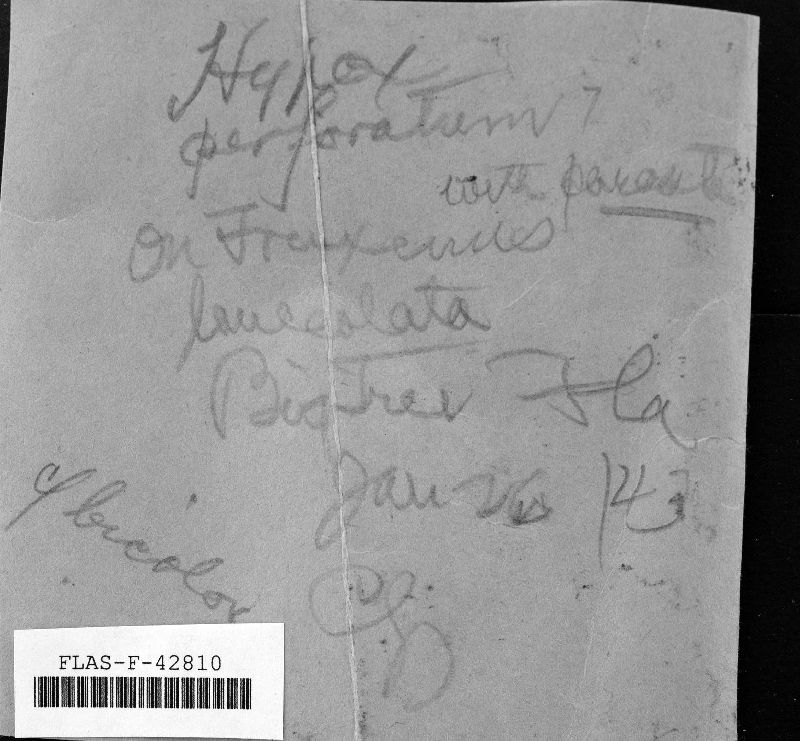 Hypox
perforatum ?
with parasite
On Fraxenues
lanceolata
Big Tree Fla
Jan 26 1943
cf bicolor
FLAS-F-42810